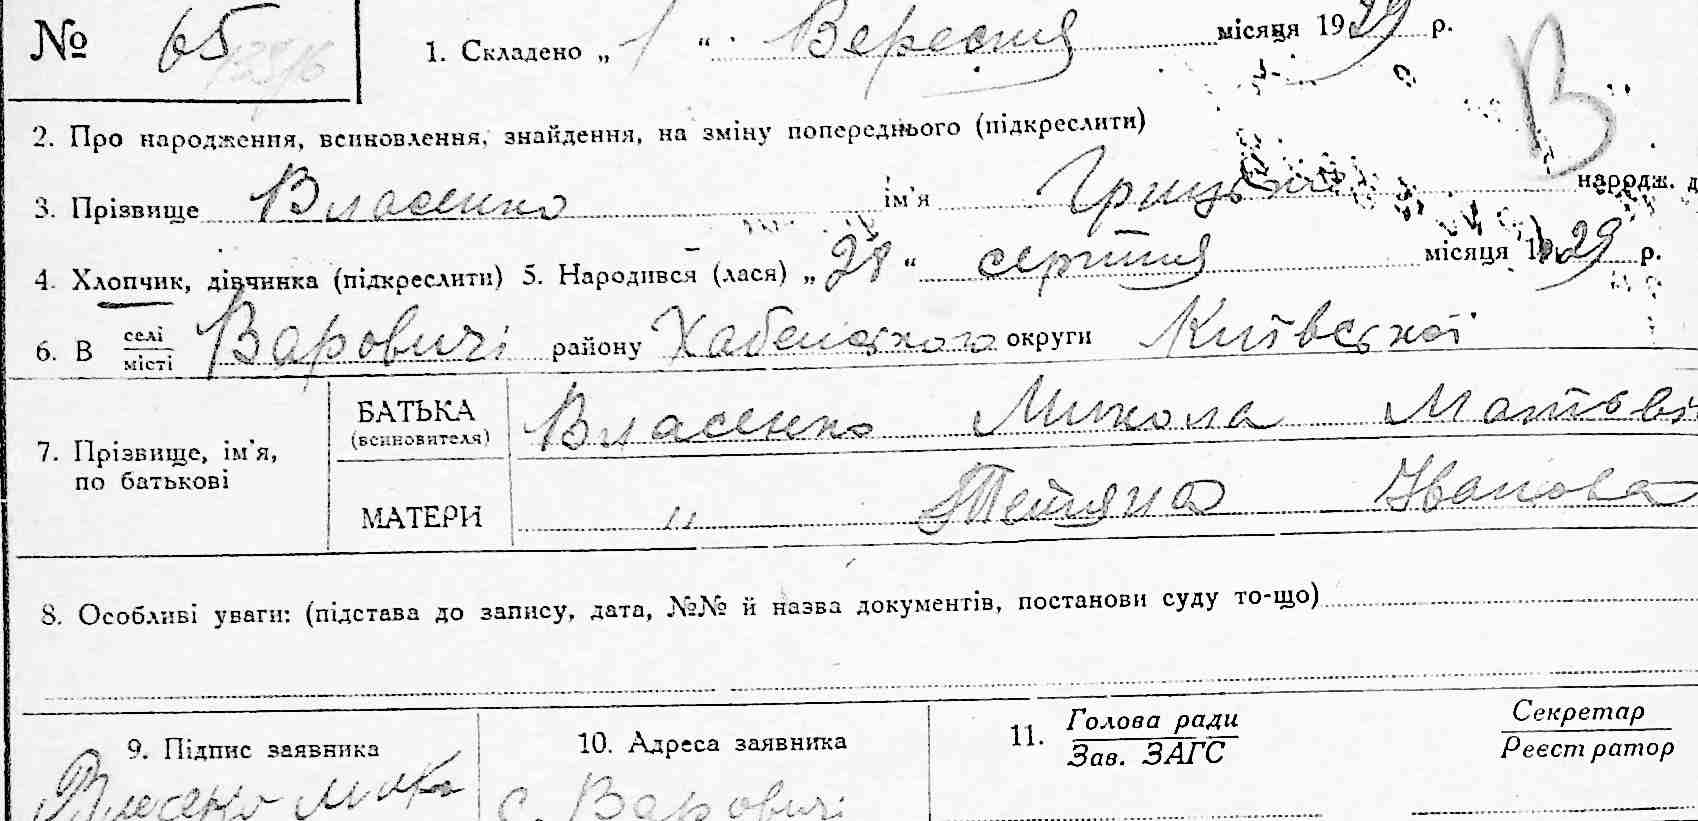 № 65 1. Складено „ 1 “ Вересня місяця 1929 р.
В
2. Про народження, всиновлення, знайдення, на зміну попереднього (підкреслити)
3. Прізвище Власенко ім'я Грицько народж. д
4. Хлопчик, дівчинка (підкреслити) 5. Народився (лася) „ 28 “ серпня місяця 1929 р.
6. В селі/місті Варовичі району Хабенського округи Київської
7. Прізвище, ім'я, по батькові
БАТЬКА (всиновителя) Власенко Микола Матвѣ
МАТЕРИ " Тетяна Іванова
8. Особливі уваги: (підстава до запису, дата, №№ й назва документів, постанови суду то-що)
9. Підпис заявника 10. Адреса заявника 11. Голова ради / Зав. ЗАГС Секретар / Реєстратор
Власенко с. Варовичі